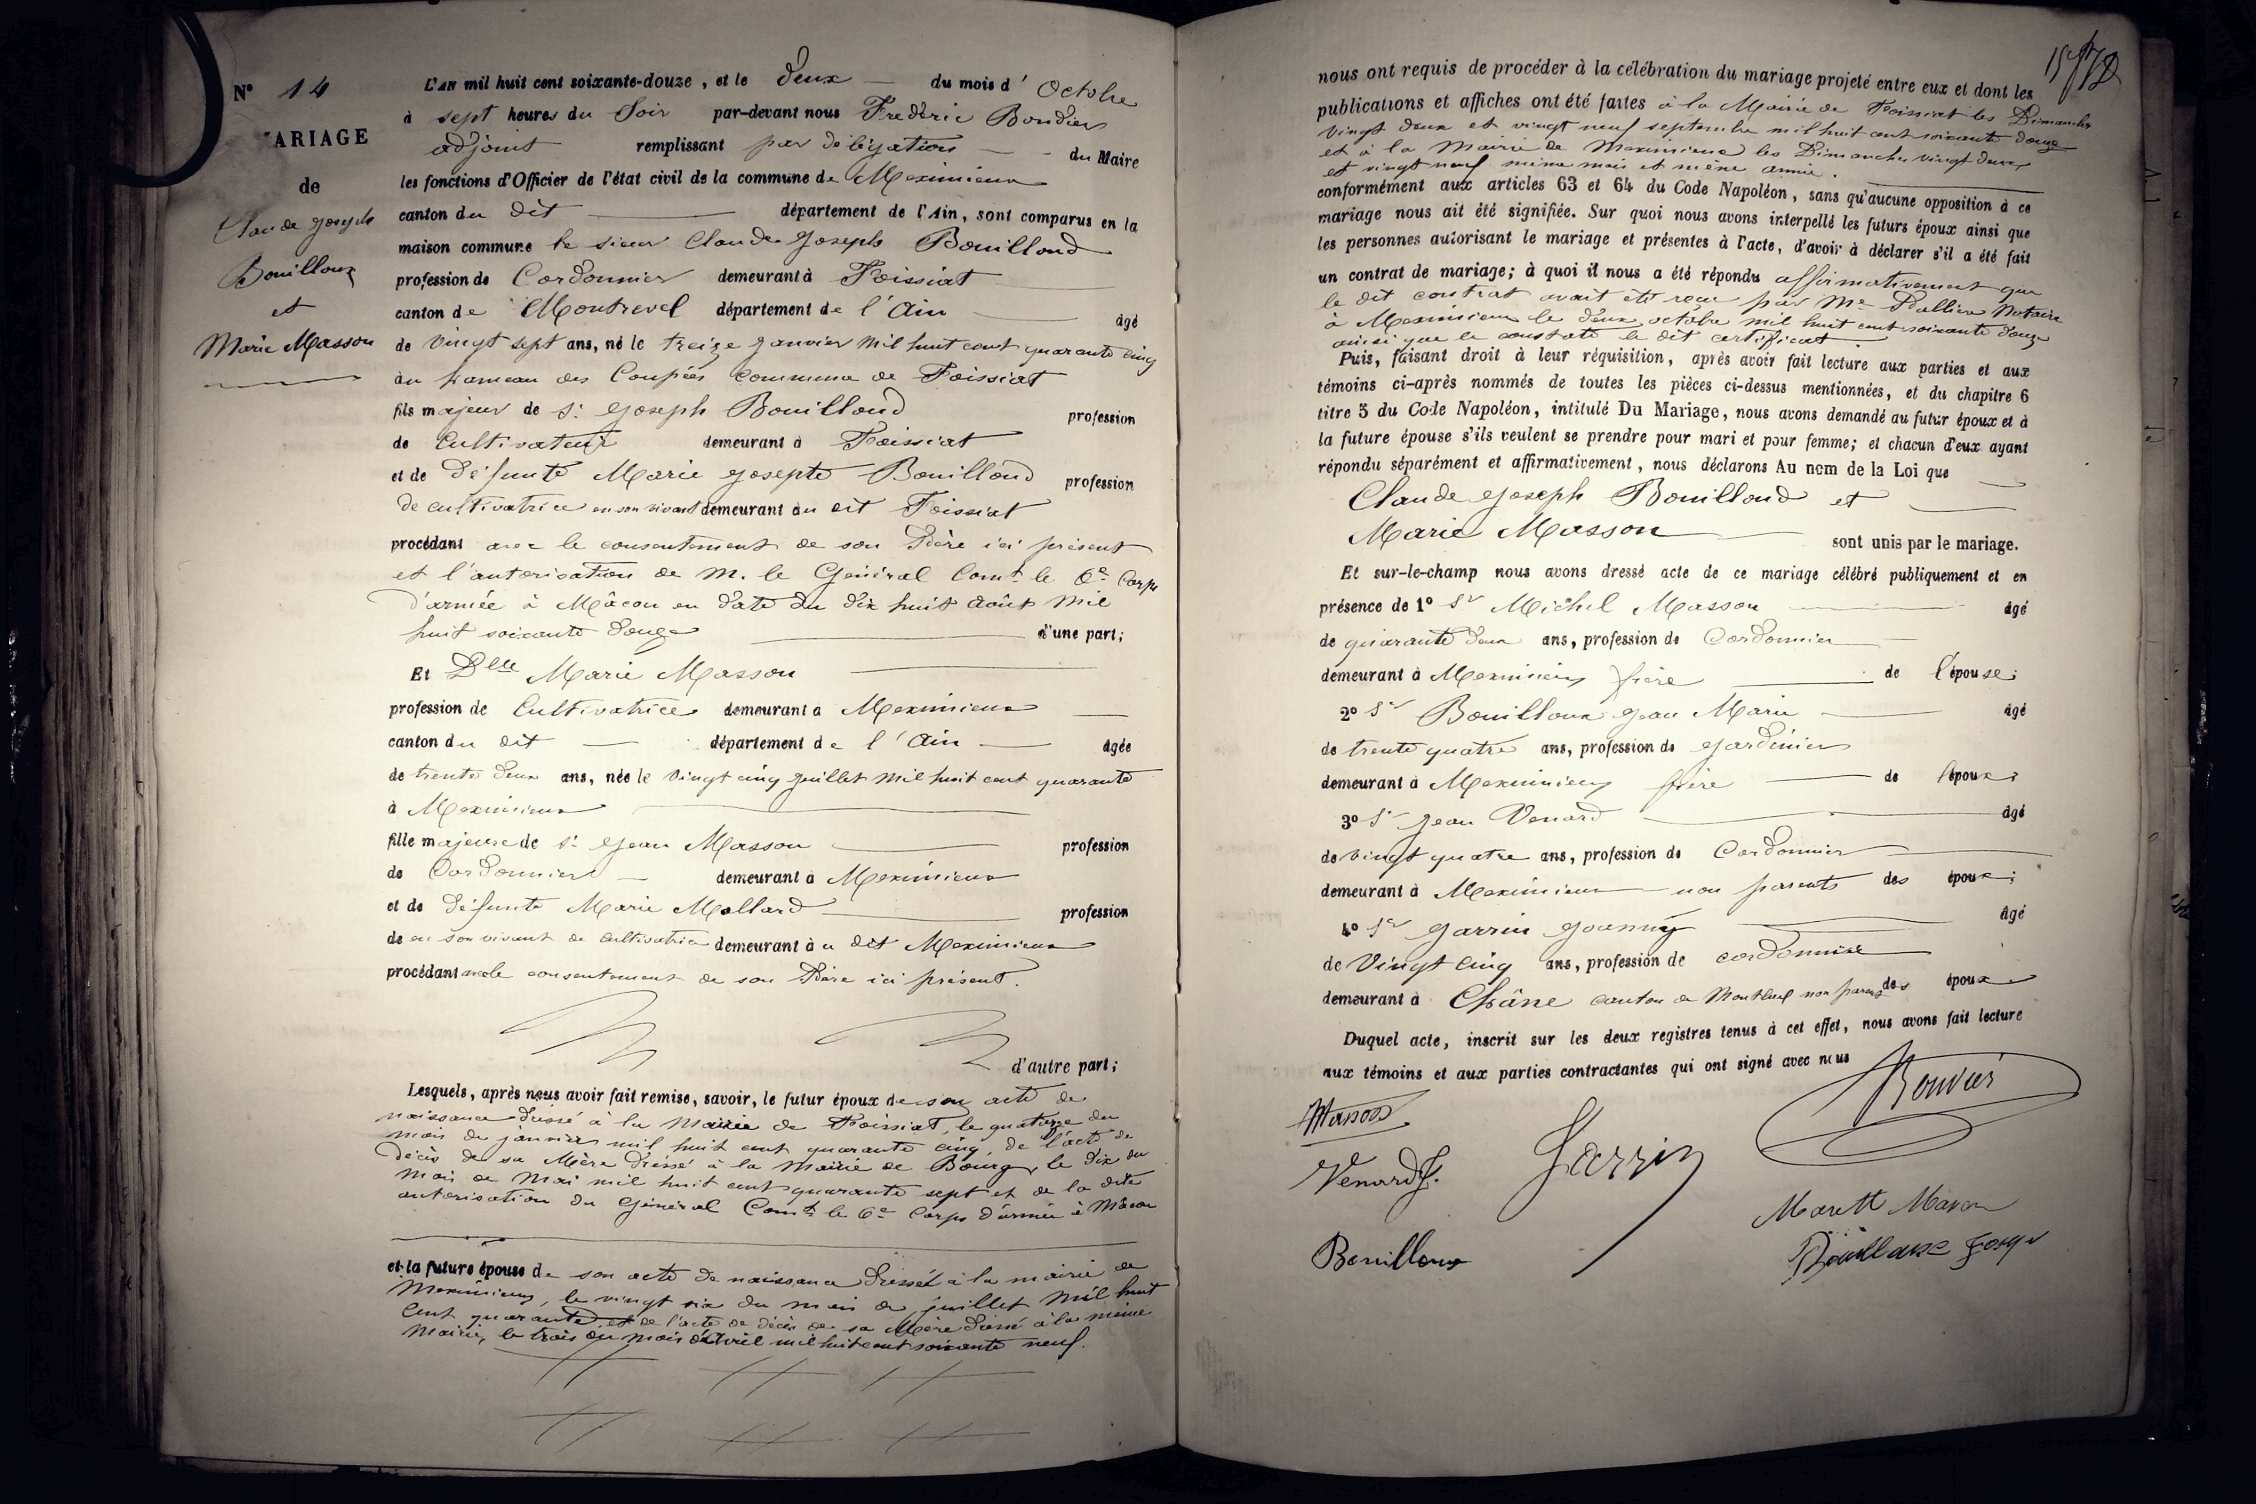 N° 14
MARIAGE
de
Claude Joseph
Bouilloux
et
Marie Masson
L'AN mil huit cent soixante-douze, et le deux du mois d' Octobre
à sept heures du Soir par-devant nous Frédéric Bouvier
adjoint remplissant par délégation du Maire
les fonctions d'Officier de l'état civil de la commune de Meximieux
canton du dit département de l'Ain, sont comparus en la
maison commune le sieur Claude Joseph Bouilloud
profession de Cordonnier demeurant à Foissiat
canton de Montrevel département de l'Ain âgé
de Vingt sept ans, né le treize Janvier mil huit cent quarante cinq
au hameau des Coupées commune de Foissiat
fils majeur de Sr Joseph Bouilloud profession
de Cultivateur demeurant à Foissiat
et de défunte Marie Josephte Bouilloud profession
de cultivatrice en son vivant demeurant au dit Foissiat
procédant avec le consentement de son Père ici présent
et l'autorisation de M. le Général Comt le 6e Corps
d'armée à Mâcon en date du dix huit Août mil
huit soixante douze d'une part;
Et Delle Marie Masson
profession de Cultivatrice demeurant à Meximieux
canton du dit département de l'Ain âgée
de trente deux ans, née le vingt cinq juillet mil huit cent quarante
à Meximieux
fille majeure de Sr Jean Masson profession
de Cordonnier demeurant à Meximieux
et de défunte Marie Mollard profession
de en son vivant de cultivatrice demeurant à u dit Meximieux
procédant avec le consentement de son Père ici présent.
d'autre part;
Lesquels, après nous avoir fait remise, savoir, le futur époux de son acte de
naissance dressé à la Mairie de Foissiat, le quatorze du
mois de janvier mil huit cent quarante cinq, de l'acte de
décès de sa Mère dressé à la Mairie de Bourg, le dix du
mois de Mai mil huit cent quarante sept et de la dite
autorisation du Général Comt le 6e Corps d'armée à Mâcon
et la future épouse de son acte de naissance dressé à la mairie de
Meximieux, le vingt six du mois de juillet mil huit
cent quarante et de l'acte de décès de sa Mère dressé à la même
Mairie, le trois du mois d'avril mil huit cent soixante neuf.
nous ont requis de procéder à la célébration du mariage projeté entre eux et dont les
publications et affiches ont été faites à la Mairie de Foissiat les Dimanches
vingt deux et vingt neuf septembre mil huit cent soixante douze
et à la Mairie de Meximieux les Dimanches vingt deux
et vingt neuf même mois et même année.
conformément aux articles 63 et 64 du Code Napoléon, sans qu'aucune opposition à ce
mariage nous ait été signifiée. Sur quoi nous avons interpellé les futurs époux ainsi que
les personnes autorisant le mariage et présentes à l'acte, d'avoir à déclarer s'il a été fait
un contrat de mariage; à quoi il nous a été répondu affirmativement que
le dit contrat avait été reçu par Me Notaire
à Meximieux le deux octobre mil huit cent soixante douze
ainsi que le constate le dit certificat
Puis, faisant droit à leur réquisition, après avoir fait lecture aux parties et aux
témoins ci-après nommés de toutes les pièces ci-dessus mentionnées, et du chapitre 6
titre 5 du Code Napoléon, intitulé Du Mariage, nous avons demandé au futur époux et à
la future épouse s'ils veulent se prendre pour mari et pour femme; et chacun d'eux ayant
répondu séparément et affirmativement, nous déclarons Au nom de la Loi que
Claude Joseph Bouilloud et
Marie Masson sont unis par le mariage.
Et sur-le-champ nous avons dressé acte de ce mariage célébré publiquement et en
présence de 1° Sr Michel Masson âgé
de quarante deux ans, profession de Cordonnier
demeurant à Meximieux frère de l'épouse;
2° Sr Bouilloux Jean Marie âgé
de trente quatre ans, profession de Jardinier
demeurant à Meximieux frère de l'époux;
3° Sr Jean Venard âgé
de vingt quatre ans, profession de Cordonnier
demeurant à Meximieux non parents des époux;
4° Sr Garrin Joanny âgé
de Vingt cinq ans, profession de cordonnier
demeurant à Châne canton de Montluel non parents des époux
Duquel acte, inscrit sur les deux registres tenus à cet effet, nous avons fait lecture
aux témoins et aux parties contractantes qui ont signé avec nous
Bouvier
Masson
Venard J.
Garrin
Bouilloux
Masson